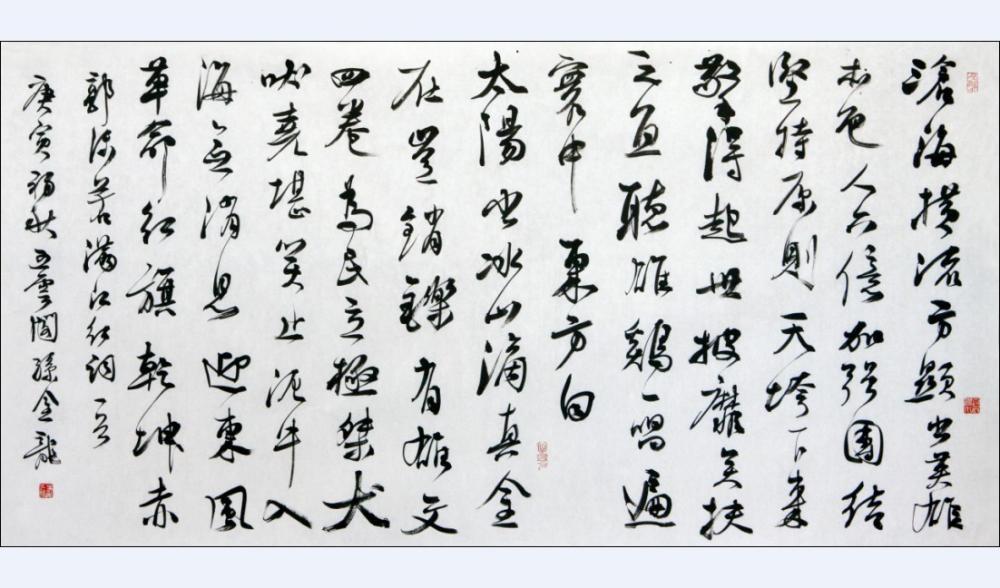 滄海横流方顯出英雄
本色人六億加强團結
堅持原則天垮下來
擎得起世披靡矣扶
之直聽雄鷄一唱遍
寰中東方白
太陽出冰山滴真金
在豈銷鑠有雄文
四卷為民立極桀犬
吠堯堪笑止泥牛入
海无消息迎東風
革命红旗乾坤赤
郭沫若滿江红詞一首
庚寅初秋五雲閣孫金龍